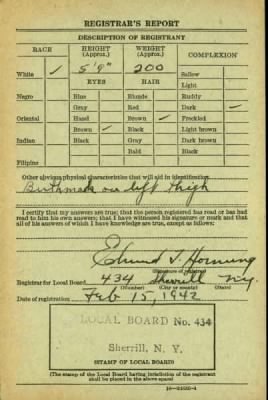 REGISTRAR'S REPORT
DESCRIPTION OF REGISTRANT
RACE HEIGHT (Approx.) WEIGHT (Approx.) COMPLEXION
5' 9" 200
White ✓ Sallow
EYES HAIR Light
Negro Blue Blonde Ruddy
Gray Red Dark ✓
Oriental Hazel Brown ✓ Freckled
Brown ✓ Black Light brown
Indian Black Gray Dark brown
Bald Black
Filipino
Other obvious physical characteristics that will aid in identification
Birthmark on left thigh
I certify that my answers are true; that the person registered has read or has had
read to him his own answers; that I have witnessed his signature or mark and that
all of his answers of which I have knowledge are true, except as follows:
Edmund T. Hornung
(Signature of registrar)
Registrar for Local Board 434 Sherrill N.Y.
(Number) (City or county) (State)
Date of registration Feb 15, 1942
LOCAL BOARD No. 434
Sherrill, N. Y.
STAMP OF LOCAL BOARD
(The stamp of the Local Board having jurisdiction of the registrant
shall be placed in the above space)